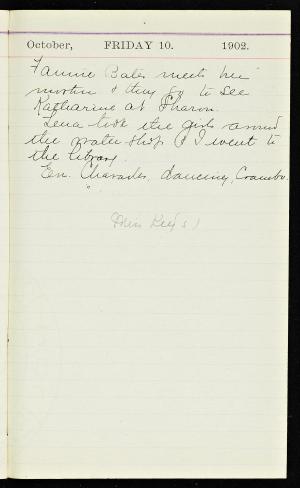 October, FRIDAY 10. 1902.
Fannie Bates meets her
mother & they go to see
Katharine at Sharon.
Lena took the girls around
the water shop & I went to
the library.
Ev. Charades, dancing, Crambo.
(Miss